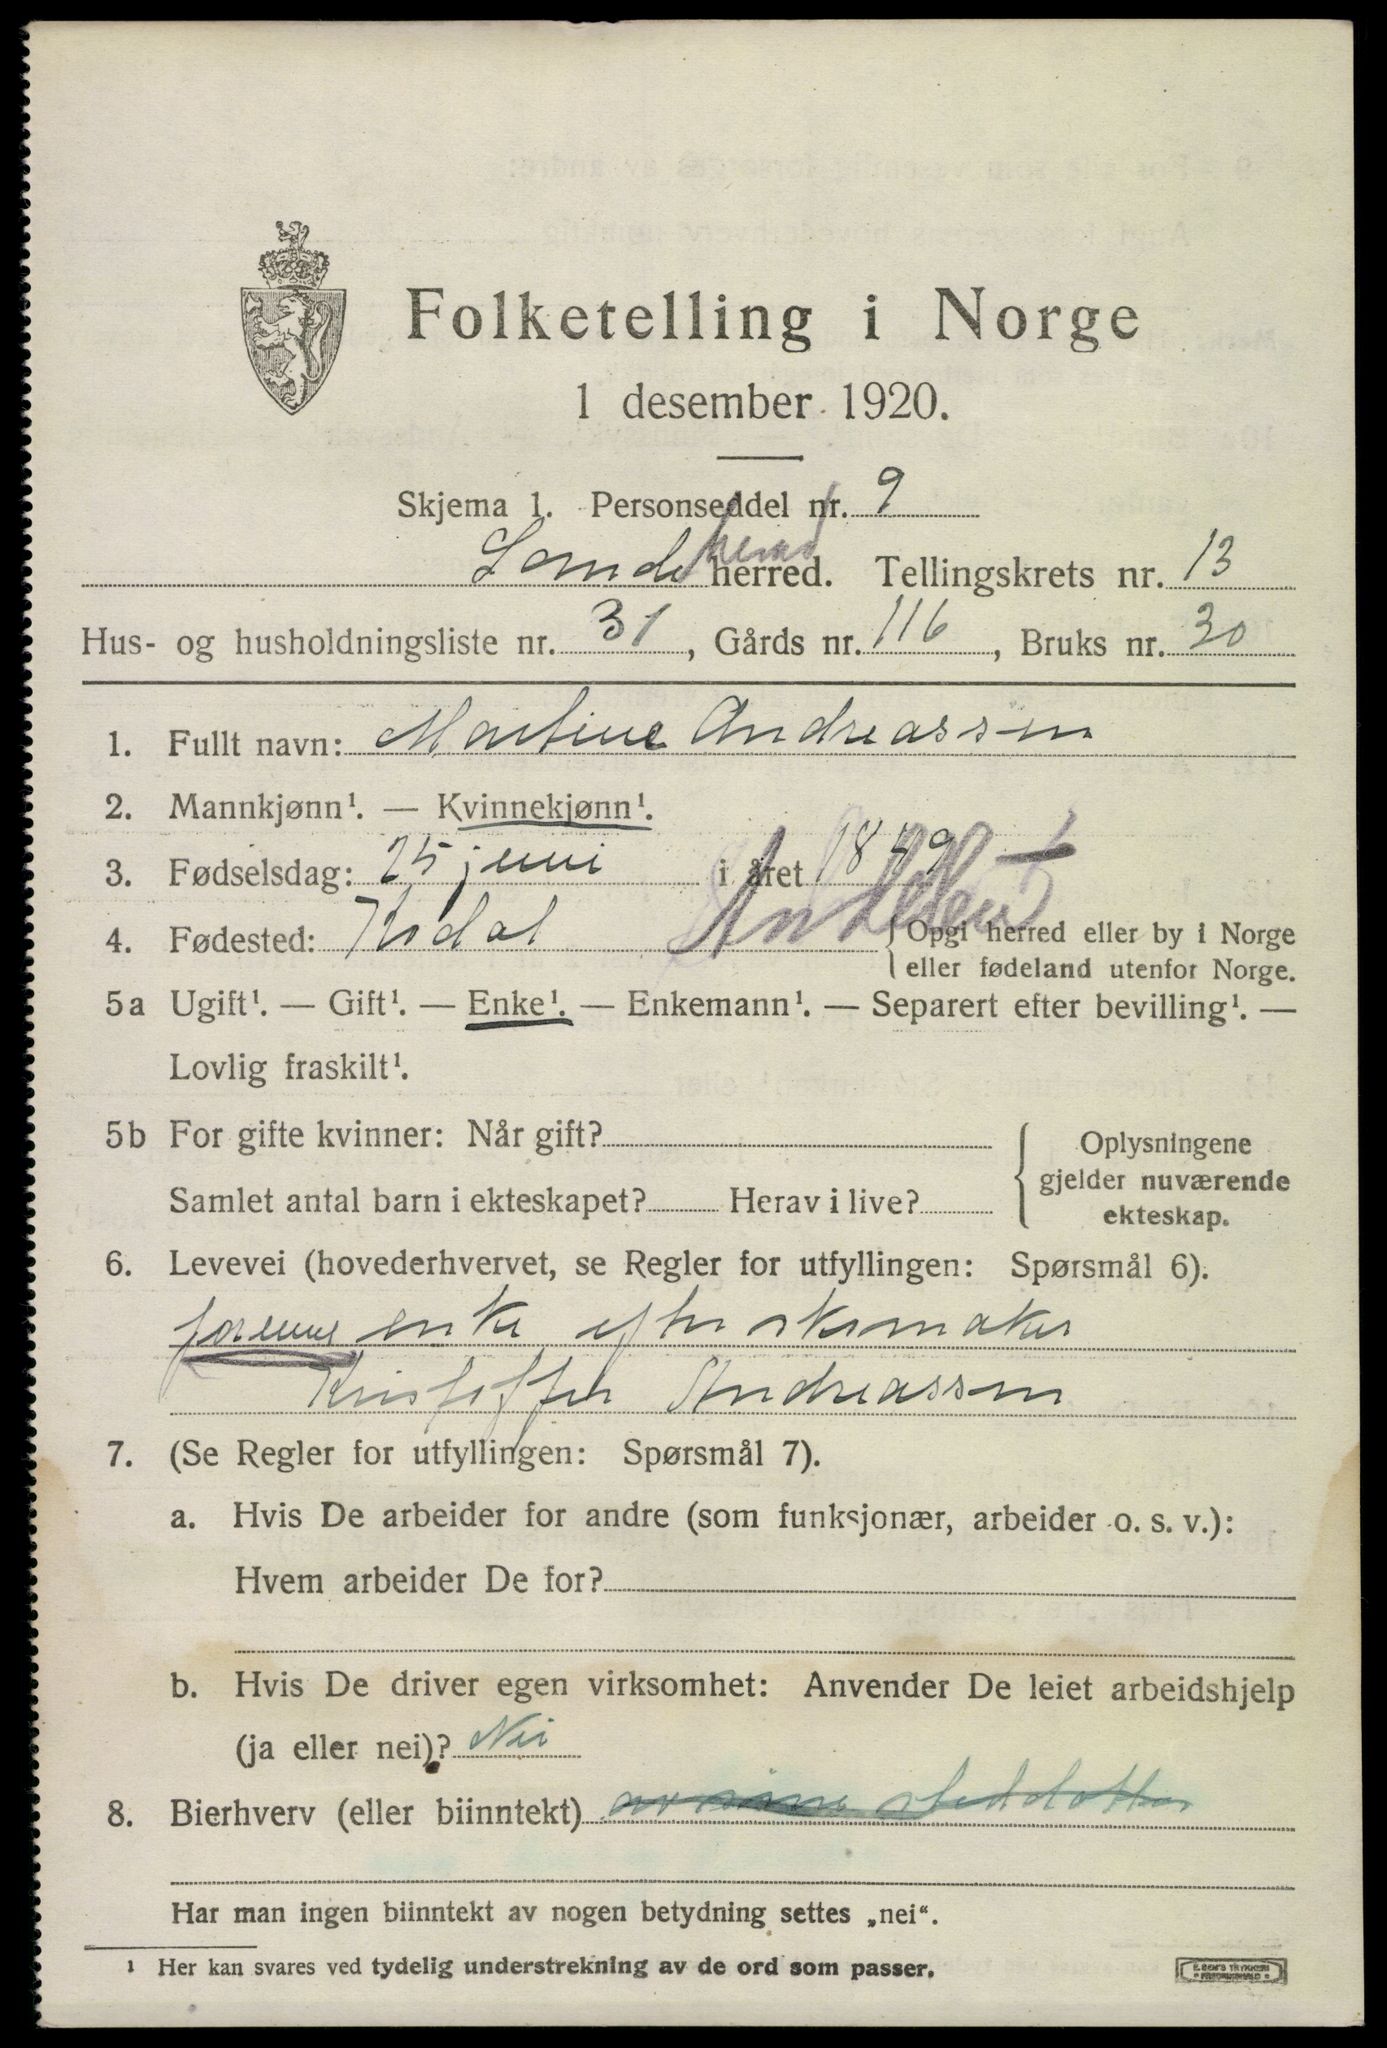 Folketelling i Norge
1 desember 1920.
Skjema 1. Personseddel nr. 9
Sande herred herred. Tellingskrets nr. 13
Hus- og husholdningsliste nr. 31, Gårds nr. 116, Bruks nr. 30
1. Fullt navn: Martine Andreassen
2. Mannkjønn¹. — Kvinnekjønn¹.
3. Fødselsdag: 25 juni i året 1849
4. Fødested: Kodal Andebu {Opgi herred eller by i Norge
eller fødeland utenfor Norge.
5a Ugift¹. — Gift¹. — Enke¹. — Enkemann¹. — Separert efter bevilling¹. —
Lovlig fraskilt¹.
5b For gifte kvinner: Når gift? { Oplysningene
gjelder nuværende
Samlet antal barn i ekteskapet? Herav i live?
ekteskap.
6. Levevei (hovederhvervet, se Regler for utfyllingen: Spørsmål 6).
enke efter skomaker
Kristoffer Andreassen
7. (Se Regler for utfyllingen: Spørsmål 7).
a. Hvis De arbeider for andre (som funksjonær, arbeider o. s. v.):
Hvem arbeider De for?
b. Hvis De driver egen virksomhet: Anvender De leiet arbeidshjelp
(ja eller nei)? Nei
8. Bierhverv (eller biinntekt) av sine steddøtter
Har man ingen biinntekt av nogen betydning settes „nei“.
¹ Her kan svares ved tydelig understrekning av de ord som passer.